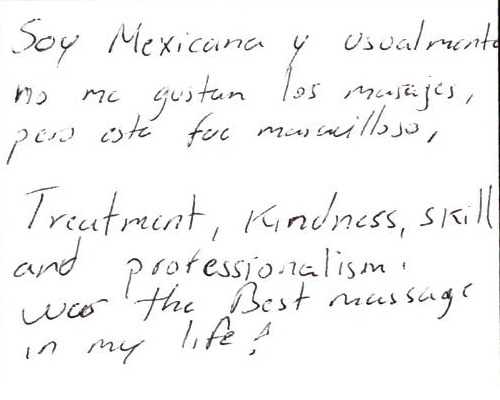 Soy Mexicana y usualmente
no me gustan los masajes,
pero este fue maravilloso,
Treatment, Kindness, skill
and professionalism.
was the Best massage
in my life!